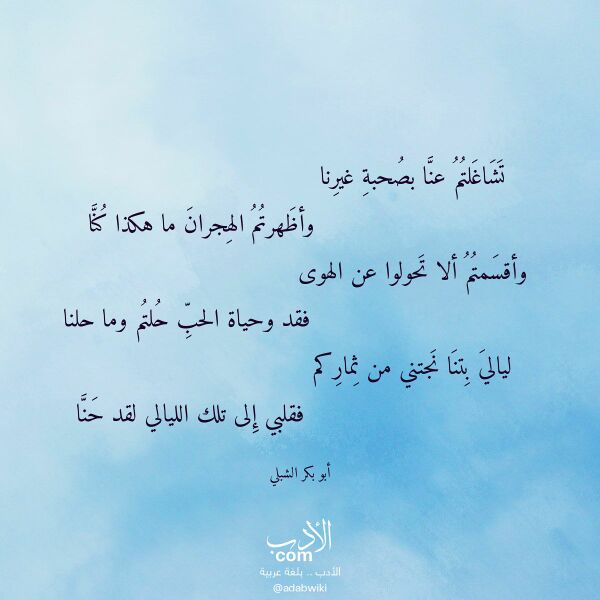 تَشَاغَلتُمُ عنَّا بصُحبةِ غيرِنا
وأظَهرتُمُ الهِجرانَ ما هكذا كُنَّا
وأقسَمتُمُ ألا تَحولوا عن الهوى
فقد وحياة الحبِّ حُلتُم وما حلنا
لياليَ بِتنَا نَجتني من ثِمارِكم
فقلبي إِلى تلك الليالي لقد حَنَّا
أبو بكر الشبلي
الأدب
com
الأدب .. بلغة عربية
@adabwiki